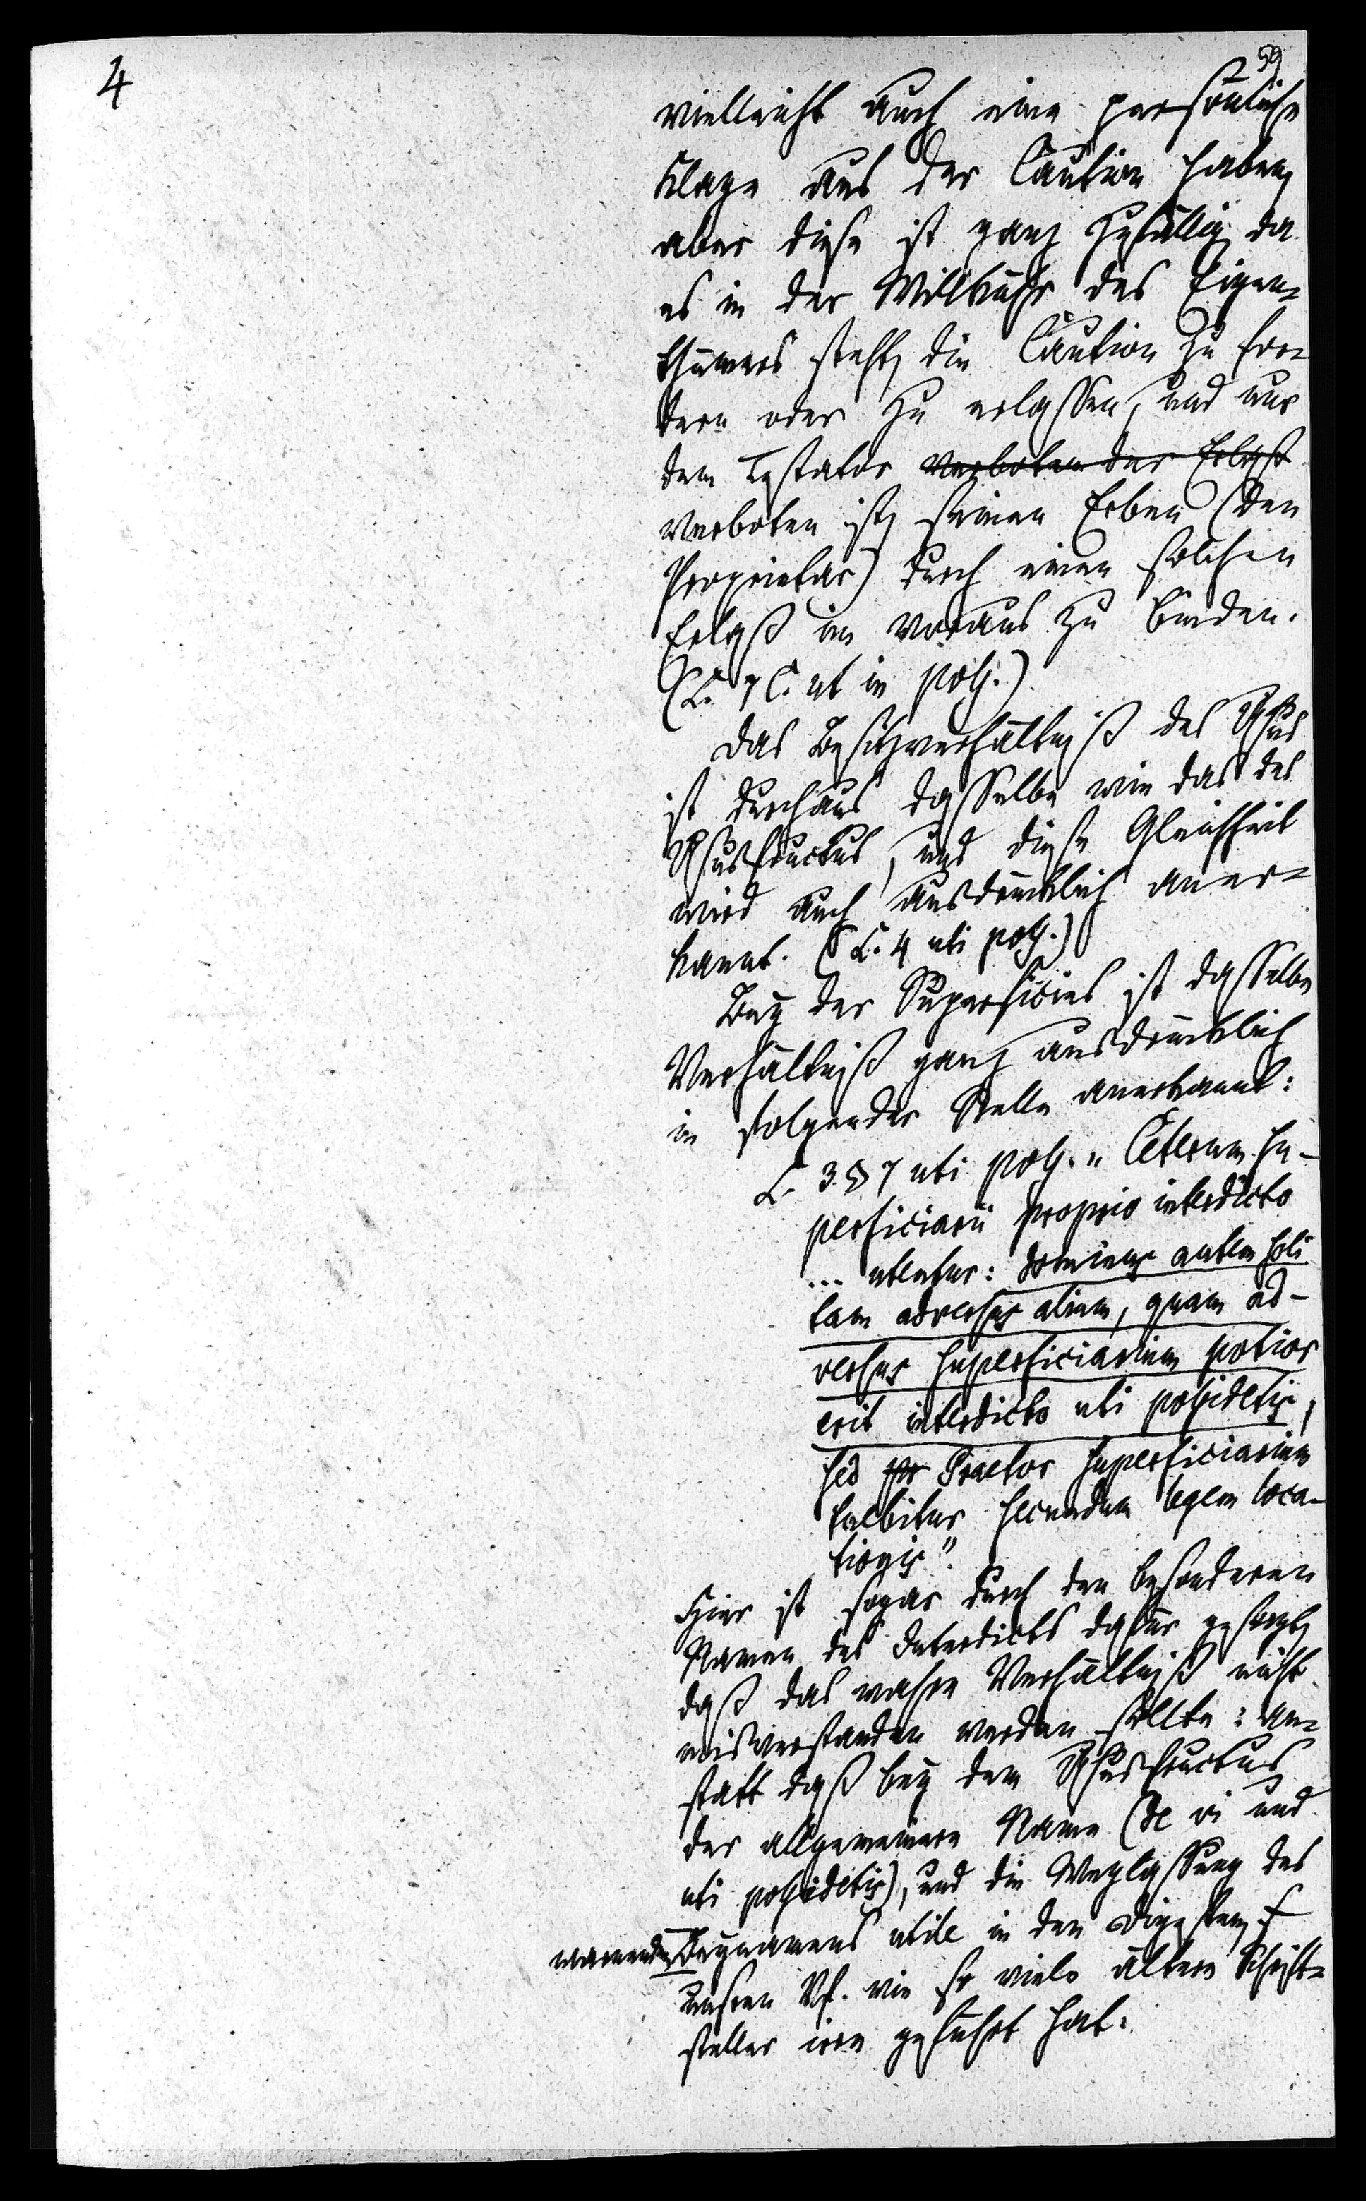 4
59
vielleicht auch eine persönliche
Klage aus der Caution haben,
aber diese ist ganz zufällig, da
es in der Willkühr des Eigen-
thümers steht, die Caution zu for-
dern oder zu erlassen, und nur
dem Testator verboten der Erlass
verboten ist, seinen Erben (den
Proprietar) durch einen solchen
Erlaß im voraus zu binden.
(L. 7 C. ut in poss.)
Das Besitzverhältniß des Usus
ist durchaus dasselbe wie das des
Ususfructus, und diese Gleichheit
wird auch ausdrücklich aner-
kannt. (L. 4 uti poss.)
Bey der Superficies ist dasselbe
Verhältniß ganz ausdrücklich
in folgender Stelle anerkannt:
L. 3 § 7 uti poss. „Ceterum su-
perficiarii proprio interdicto
... utetur: dominus autem soli
tam adversus alium, quam ad-
versus superficiarium potior
erit interdicto uti possidetis,
sed Praetor superficiarium
tuebitur secundum legem loca-
tionis".
Hier ist sogar durch den besonderen
Namen des Interdicts dafür gesorgt,
daß das wahre Verhältniß nicht
misverstanden werden sollte: an-
statt daß bey dem Ususfructus
der allgemeinere Name (de vi und
uti possidetis), und die Weglassung des
Beynamens utile in den Digesten
unsren Vf. wie so viele ältere Schrift-
steller irre geführt hat.